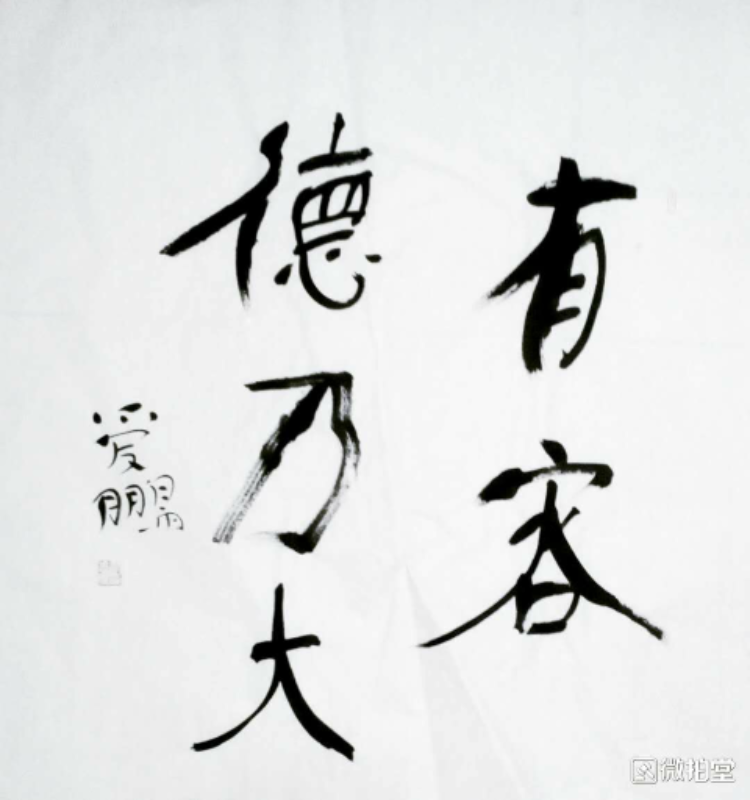 有容
德乃大
爱鹏
微拍堂